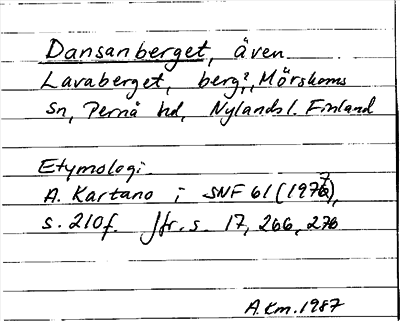 Dansanberget, även
Lavaberget, berg?, Mörskoms
Sn, Pernå hd, Nylands l. Finland
Etymologi
A. Kartano i SNF 61 (1977),
s. 210f. Jfr. s. 17, 266, 276
A.Km.1987